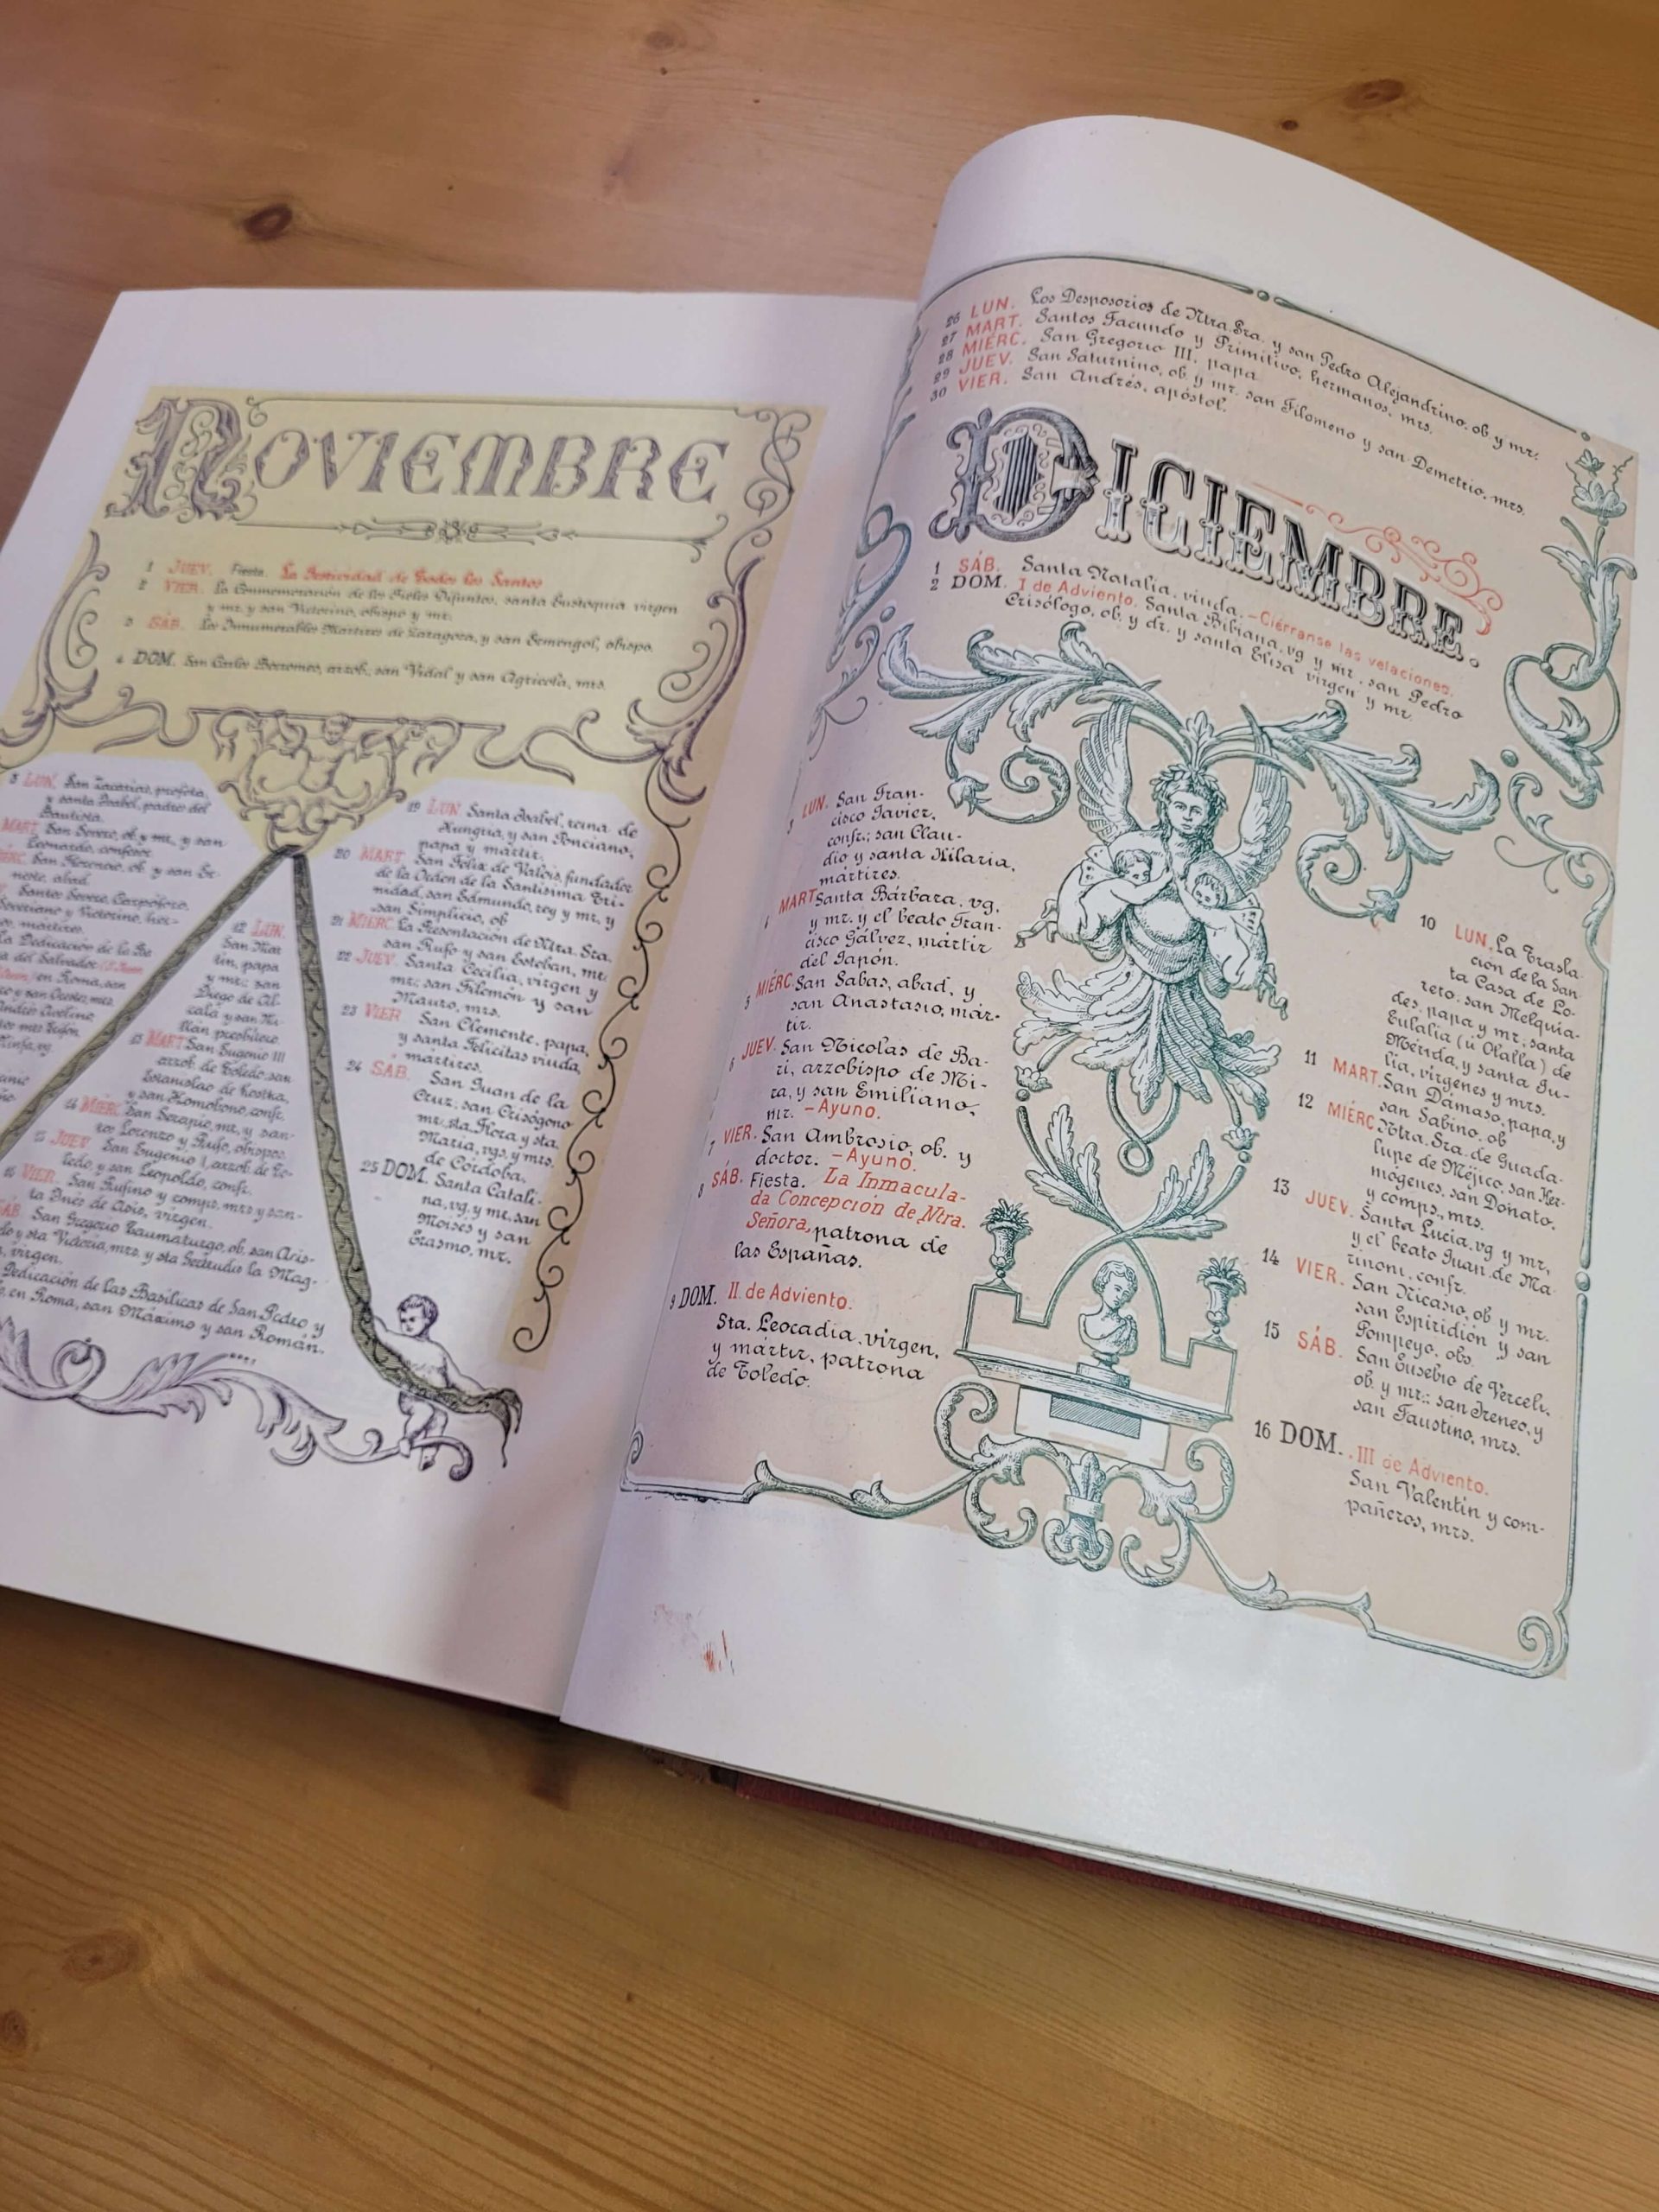 NOVIEMBRE
1 JUEV. Fiesta. La Festividad de Todos los Santos
2 VIER. La Conmemoración de los Fieles Difuntos, santa Eustoquia virgen
y mr. y san Victorino, obispo y mr.
3 SÁB. Los Innumerables Mártires de Zaragoza, y san Ermengol, obispo.
4 DOM. San Carlos Borromeo, arzob., san Vidal y san Agrícola, mrs.
5 LUN. San Zacarías, profeta,
y santa Isabel, padres del
Bautista.
MART. San Severo, ob. y mr., y san
Leonardo, confesor.
San Florencio, ob. y san Er-
nesto, abad.
Santos Severo, Carpóforo,
Severiano y Victorino, her-
mártires.
La Dedicación de la Ba
del Salvador
en Roma, san
y san Oreste, mrs.
Andrés Avelino,
Ninfa, vg.
12 LUN.
San Mar
tín, papa
y mr.; san
Diego de Al-
calá y san Mi-
llán presbítero.
13 MART. San Eugenio III
arzob. de Toledo, san
Estanislao de Kostka,
y san Homobono, confs.
14 MIÉRC. San Serapio, mr., y san-
tos Lorenzo y Rufo, obispos.
15 JUEV. San Eugenio I, arzob. de To-
ledo, y san Leopoldo, confr.
16 VIER. San Rufino y comps. mrs. y san-
ta Inés de Asís, virgen.
SÁB. San Gregorio Taumaturgo, ob. san Acis-
clo y sta Victoria, mrs. y sta Gertrudis la Mag-
virgen.
Dedicación de las Basílicas de San Pedro y
en Roma, san Máximo y san Román.
19 LUN. Santa Isabel, reina de
Hungría, y san Ponciano,
papa y mártir.
20 MART. San Félix de Valois, fundador
de la Orden de la Santísima Tri-
nidad, san Edmundo, rey y mr. y
san Simplicio, ob
21 MIÉRC. La Presentación de Ntra. Sra.
san Rufo y san Esteban, mr.
22 JUEV. Santa Cecilia, virgen y
mr.; san Filemón y san
Mauro, mrs.
23 VIER San Clemente, papa,
y santa Felicitas viuda,
mártires.
24 SÁB. San Juan de la
Cruz, san Crisógono
mr. sta. Flora y sta.
María, vgs. y mrs.
de Córdoba.
25 DOM. Santa Catali-
na, vg. y mr. san
Moisés y san
Erasmo, mr.
26 LUN. Los Desposorios de Ntra. Sra. y san Pedro Alejandrino, ob. y mr.
27 MART. Santos Facundo y Primitivo, hermanos, mrs.
28 MIÉRC. San Gregorio III, papa
29 JUEV. San Saturnino, ob. y mr. san Filomeno y san Demetrio, mrs.
30 VIER. San Andrés, apóstol.
DICIEMBRE.
1 SÁB. Santa Natalia, viuda. – Ciérranse las velaciones.
2 DOM. I de Adviento. Santa Bibiana, vg y mr, san Pedro
Crisólogo, ob. y dr. y santa Elisa virgen y mr.
3 LUN. San Fran-
cisco Javier,
confr.; san Clau-
dio y santa Hilaria,
mártires.
4 MART. Santa Bárbara, vg.
y mr. y el beato Fran-
cisco Gálvez, mártir
del Japón.
5 MIÉRC. San Sabas, abad, y
san Anastasio, már-
tir.
6 JUEV. San Nicolás de Ba-
ri, arzobispo de Mi-
ra, y san Emiliano,
mr. – Ayuno.
7 VIER. San Ambrosio, ob. y
doctor. – Ayuno.
8 SÁB. Fiesta. La Inmacula-
da Concepción de Ntra.
Señora, patrona de
las Españas.
9 DOM. II de Adviento.
Sta. Leocadia, virgen,
y mártir, patrona
de Toledo.
10 LUN. La Trasla-
ción de la San
ta Casa de Lo-
reto, san Melquia-
des, papa y mr, santa
Eulalia (ú Olalla) de
Mérida, y santa Ju-
lia, vírgenes y mrs.
11 MART. San Dámaso, papa, y
san Sabino, ob
12 MIÉRC. Ntra. Sra. de Guada-
lupe de Méjico, san Her-
mógenes, san Donato,
y comps, mrs.
13 JUEV. Santa Lucía, vg y mr,
y el beato Juan de Ma-
rinoni, confr.
14 VIER. San Nicasio, ob y mr.
san Espiridión y san
Pompeyo, obs.
15 SÁB. San Eusebio de Verceli,
ob. y mr.; san Ireneo, y
san Faustino, mrs.
16 DOM. III de Adviento.
San Valentín y com-
pañeros, mrs.